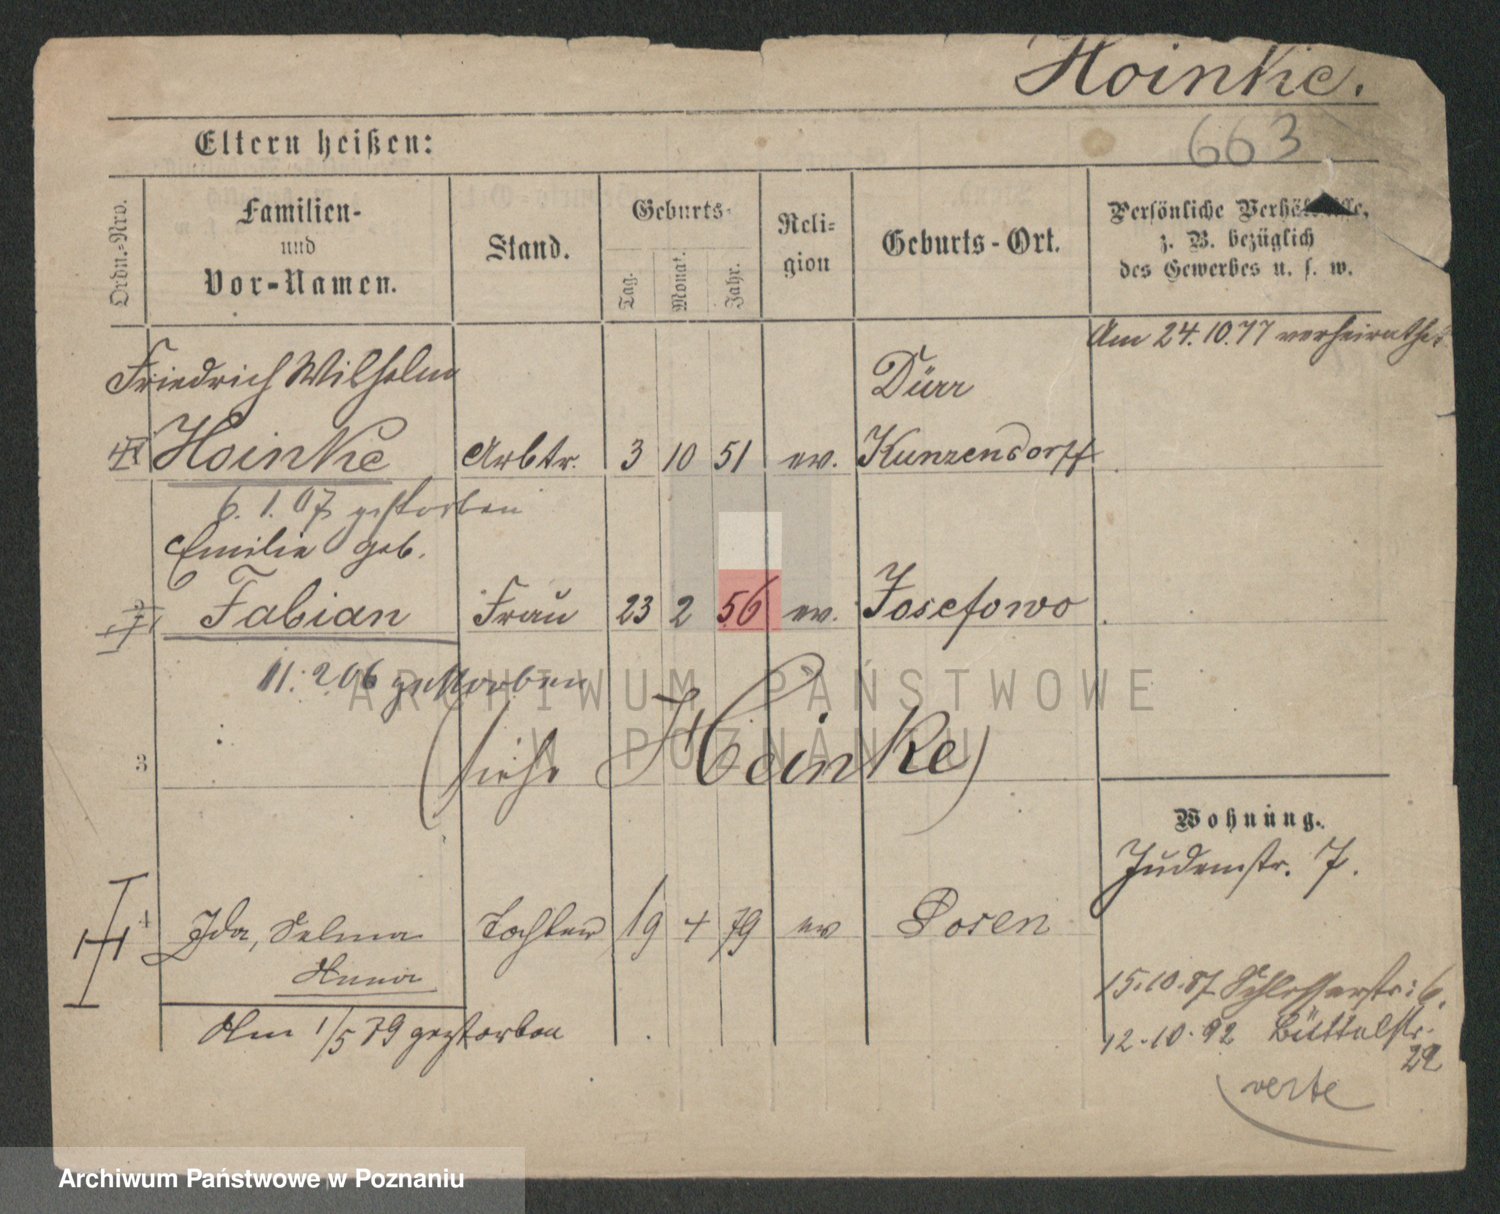 Hoinke.
663
Eltern heißen:
Ordn.-Nro.
Familien-
und
Vor-Namen.
Stand.
Geburts-
Tag.
Monat.
Jahr.
Reli-
gion
Geburts-Ort.
Persönliche Verhältnisse,
z. B. bezüglich
des Gewerbes u. s. w.
Am 24.10.77 verheirathet
Friedrich Wilhelm
Hoinke Arbtr. 3 10 51 ev. Dürr Kunzendorff
6.1.07 gestorben
Emilie geb.
Fabian Frau 23 2 56 ev. Josefowo
11.2.06 gestorben
ARCHIWUM PAŃSTWOWE
W POZNANIU
3
(siehe Heinke)
Wohnung.
Judenstr. 7.
4 Ida, Selma Tochter 19 4 79 ev Posen
Anna
Am 1/5 79 gestorben
15.10.87 Schlosserstr: 6.
12.10.92 Büttelstr.
22
verte
Archiwum Państwowe w Poznaniu